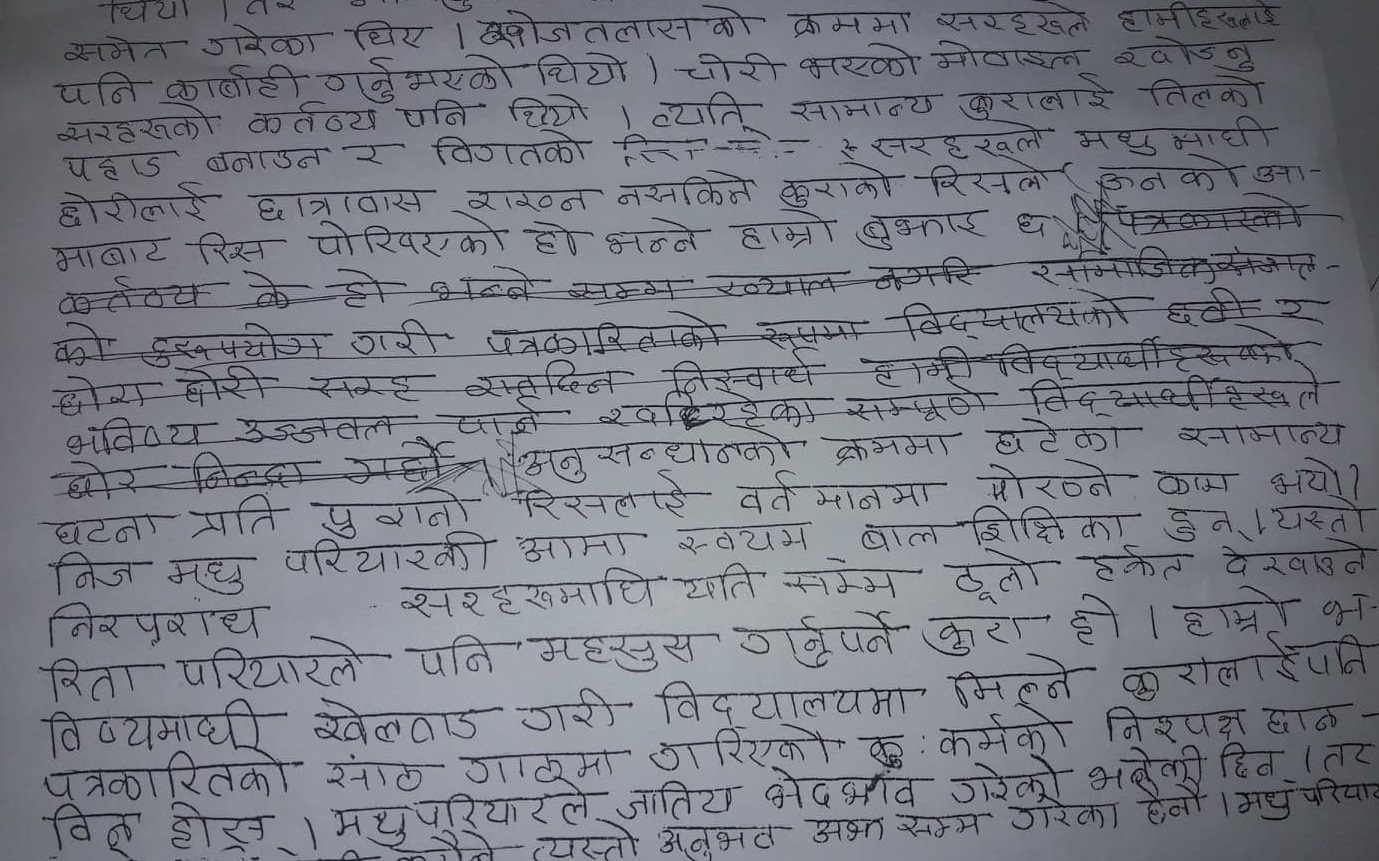 थियो । तर
समेत गरेका थिए । खोजतलासको क्रममा सरहरूले हामीहरूलाई
पनि कार्बाही गर्नुभएको थियो । चोरी भएको मोबाइल खोज्नु
सरहरूको कर्तव्य पनि थियो । त्यति सामान्य कुरालाई तिलको
पहाड बनाउन र विगतको सरहरूले मधु माथी
छोरीलाई छात्रावास राख्न नसकिने कुराको रिसले उनको आ-
माबाट रिस पोखिएको हो भन्ने हाम्रो बुझाइ छ पत्रकारको
कर्तव्य के हो भन्ने सम्म ख्याल नगरि सामाजिक संजाल-
को दुरूपयोग गरी पत्रकारिताको रूपमा विद्यालयको छवी र
छोरा छोरी सरह रातदिन निस्वार्थ हामी विद्यार्थीहरूको
भविष्य उज्जवल पार्न सम्पूर्ण विद्यार्थीहरूले
घोर निन्दा गर्छौं अनुसन्धानको क्रममा घटेका सामान्य
घटना प्रति पुरानो रिसलाई वर्तमानमा पोख्ने काम भयो।
निज मधु परियारकी आमा स्वयम बाल शिक्षिका हुन् । यस्तो
निरपराध सरहरूमाथि यति सम्म ठूलो हर्कत देखाउने
रिता परियारले पनि महसुस गर्नुपर्ने कुरा हो । हाम्रो भ-
विष्यमाथी खेलवाड गरी विद्यालयमा मिल्ने कुरालाई पनि
पत्रकारितको सांठ गाठमा गरिएको कु कर्मको निश्पक्ष छान-
विन होस् । मधु परियारले जातिय भेदभाव गरेको भनेकी छिन् । तर
त्यस्तो अनुभव अझ सम्म गरेका छैनौं । मधु परियार